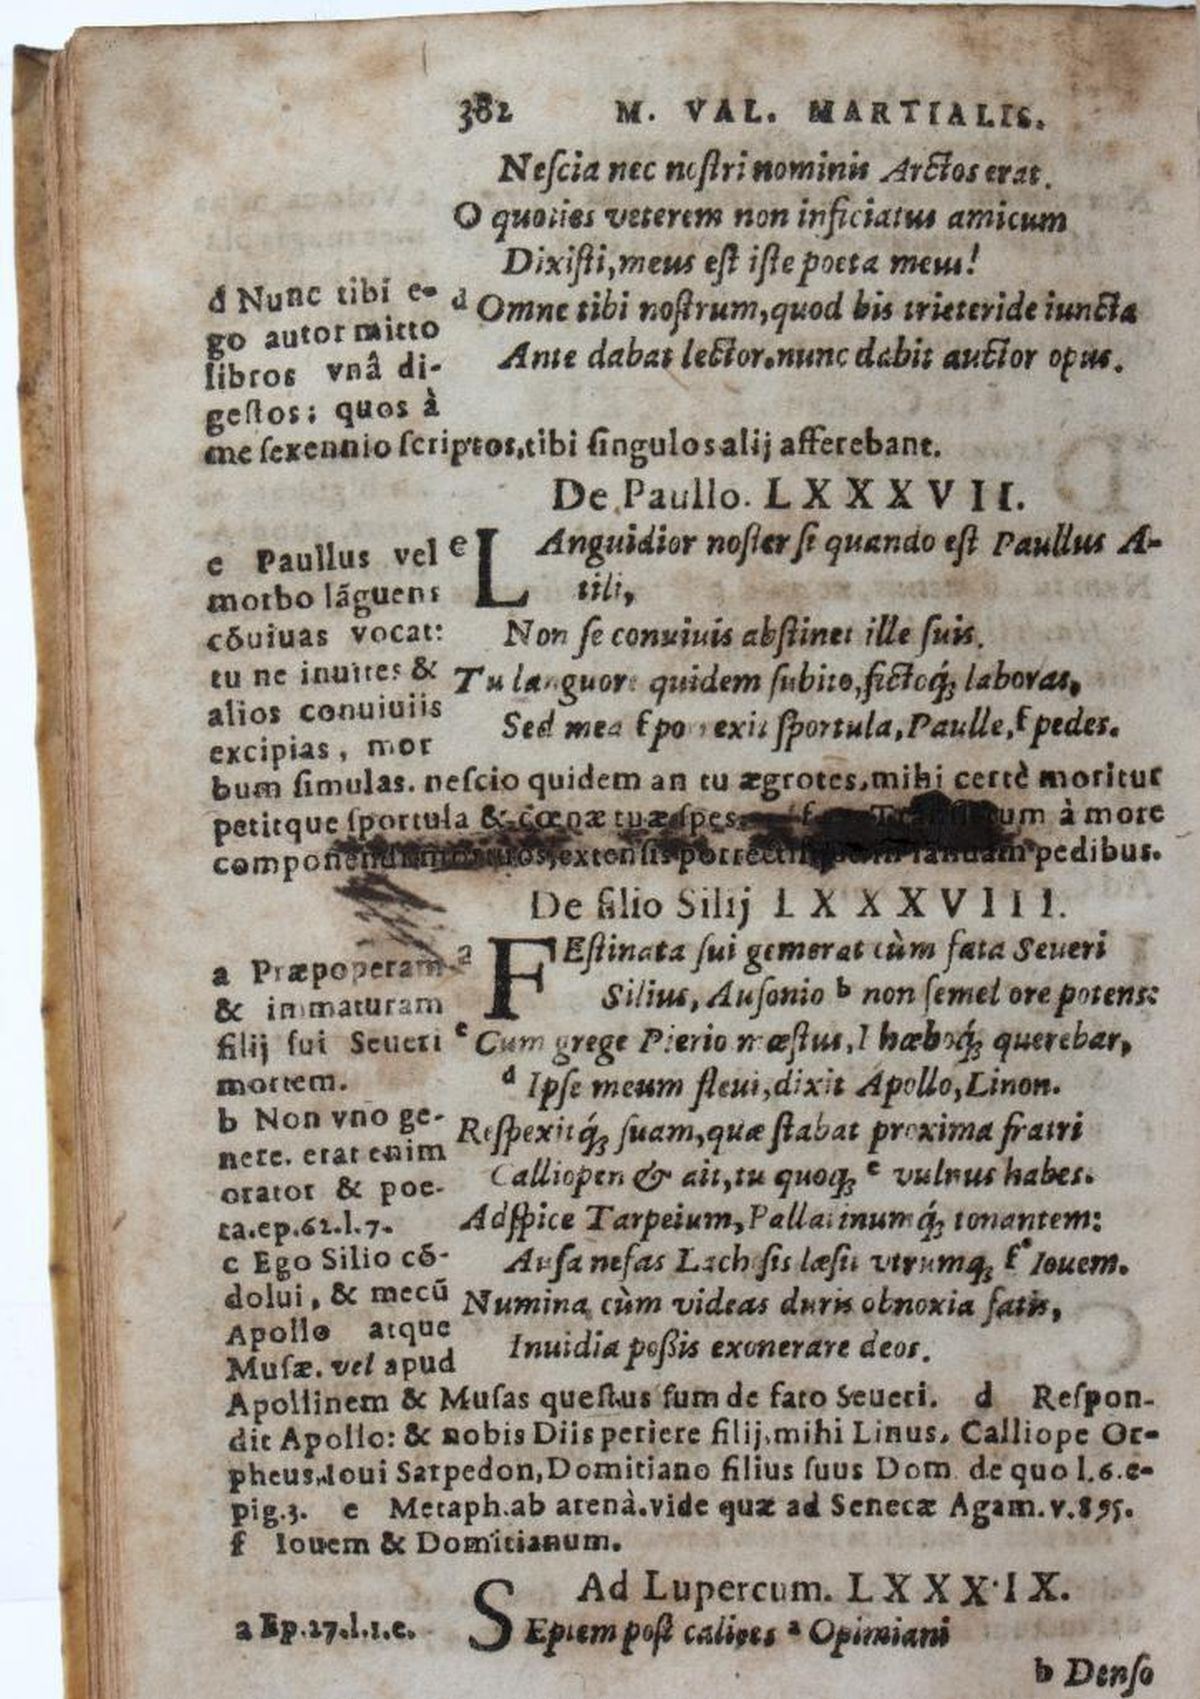 382 M. VAL. MARTIALIS.
Neſcia nec noſtri nominis Arctos erat.
O quoties veterem non inficiatus amicum
Dixiſti, meus eſt iſte poeta meus!
d Omne tibi noſtrum, quod bis trieteride iuncta
Ante dabat lector, nunc dabit auctor opus.
d Nunc tibi e-
go autor mitto
libros vnâ di-
geſtos: quos à
me ſexennio ſcriptos, tibi ſingulos alij afferebant.
De Paullo. LXXXVII.
e LAnguidior noſter ſi quando eſt Paullus A-
tili,
Non ſe conuiuis abſtinet ille ſuis.
Tu languore quidem ſubito, fictoq́; laboras,
Sed mea f porrexit ſportula, Paulle, f pedes.
e Paullus vel
morbo lãguens
cõuiuas vocat:
tu ne inuites &
alios conuiuiis
excipias, mor
bum ſimulas. neſcio quidem an tu ægrotes, mihi certè moritur
petitque ſportula & cœnæ tuæ ſpes. um à more
componendi mortuos, extenſis porrectis ianuam pedibus.
De filio Silij LXXXVIII.
a FEſtinata ſui gemerat cùm fata Seueri
Silius, Auſonio b non ſemel ore potens:
c Cum grege Pierio mæſtus, Phæboq́; querebar,
d Ipſe meum fleui, dixit Apollo, Linon.
Reſpexitq́; ſuam, quæ ſtabat proxima fratri
Calliopen & ait, tu quoq; e vulnus habes.
Adſpice Tarpeium, Pallatinumq́; tonantem:
Auſa nefas Lacheſis læſit vtrumq; f Iouem.
Numina cùm videas duris obnoxia fatis,
Inuidia poßis exonerare deos.
a Præpoperam
& immaturam
filij ſui Seueri
mortem.
b Non vno ge-
nere. erat enim
orator & poe-
ta. ep. 62. l. 7.
c Ego Silio cõ-
dolui, & mecũ
Apollo atque
Muſæ. vel apud
Apollinem & Muſas queſtus ſum de fato Seueri. d Reſpon-
dit Apollo: & nobis Diis periere filij, mihi Linus, Calliope Or-
pheus, Ioui Sarpedon, Domitiano filius ſuus Dom. de quo l. 6. e-
pig. 3. e Metaph. ab arenà. vide quæ ad Senecæ Agam. v. 895.
f Iouem & Domitianum.
Ad Lupercum. LXXXIX.
SEptem poſt calices a Opimiani
a Ep. 27. l. 1. e.
b Denſo